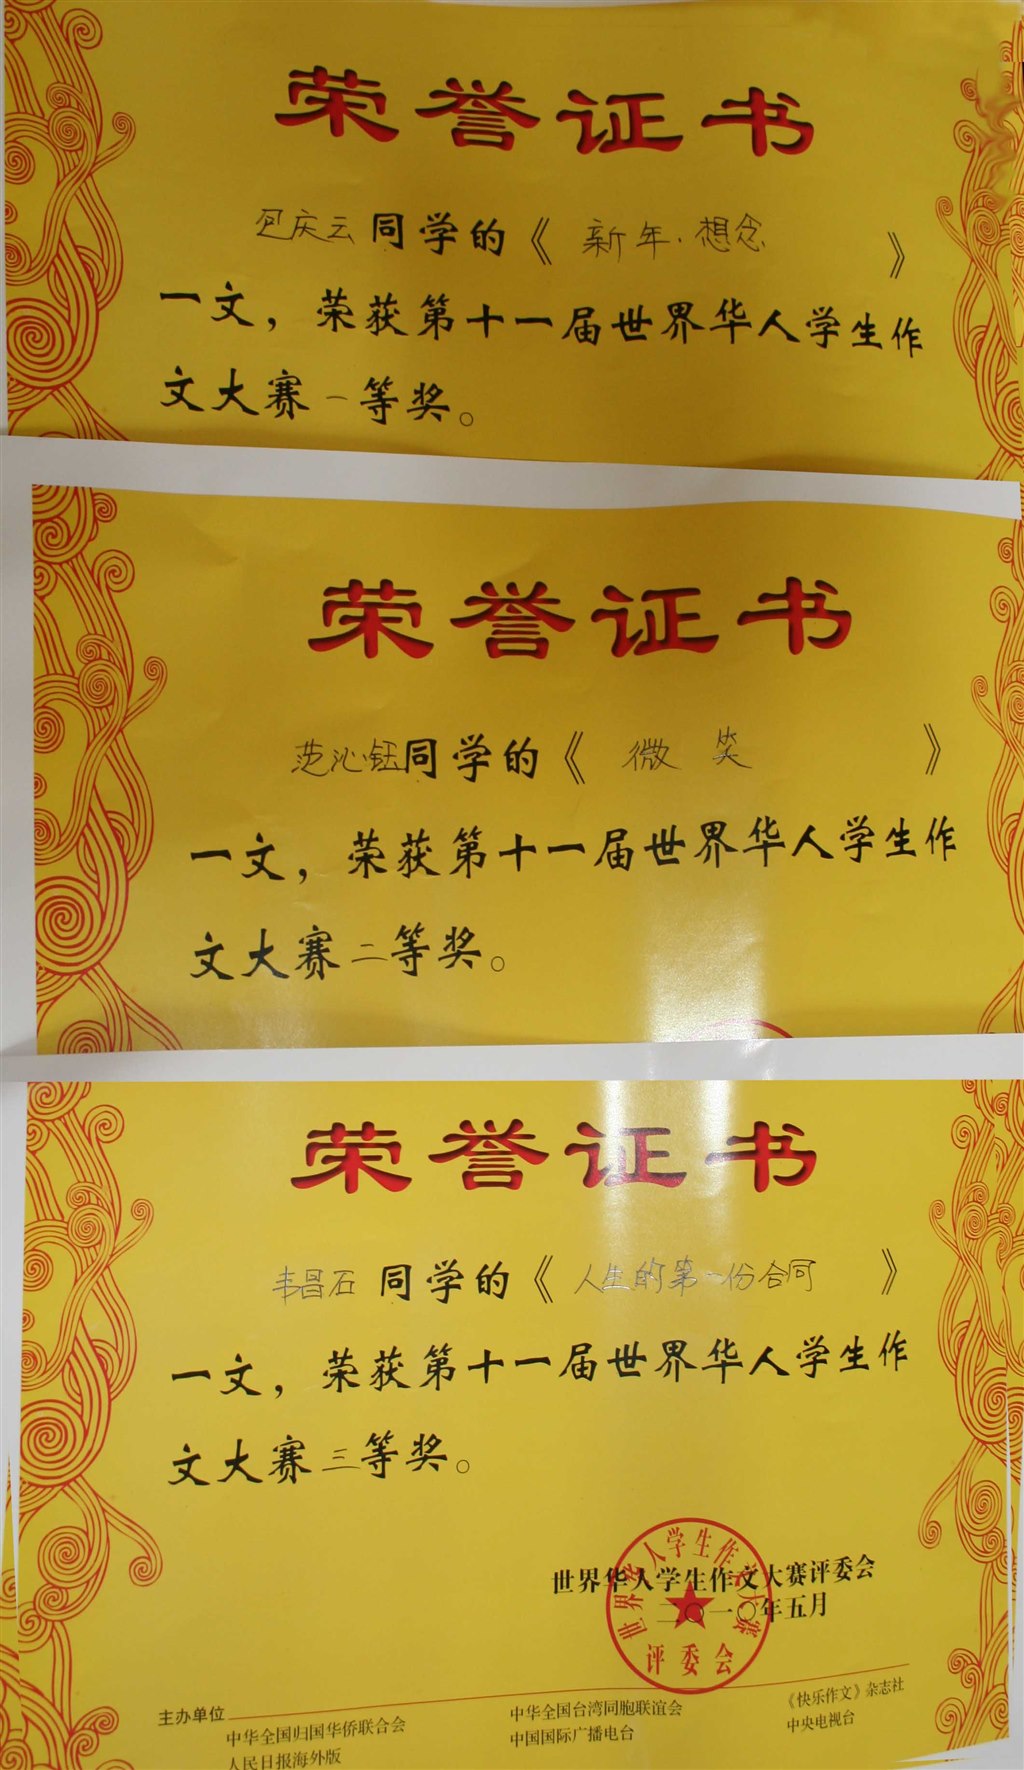 荣誉证书
包庆云同学的《 新年·想念 》
一文，荣获第十一届世界华人学生作
文大赛一等奖。
荣誉证书
范沁钰同学的《 微笑 》
一文，荣获第十一届世界华人学生作
文大赛二等奖。
荣誉证书
韦昌石同学的《 人生的第一份合同 》
一文，荣获第十一届世界华人学生作
文大赛三等奖。
世界华人学生作文大赛评委会
二〇一〇年五月
世界华人学生作文大赛
评委会
主办单位
中华全国归国华侨联合会 中华全国台湾同胞联谊会 《快乐作文》杂志社
人民日报海外版 中国国际广播电台 中央电视台